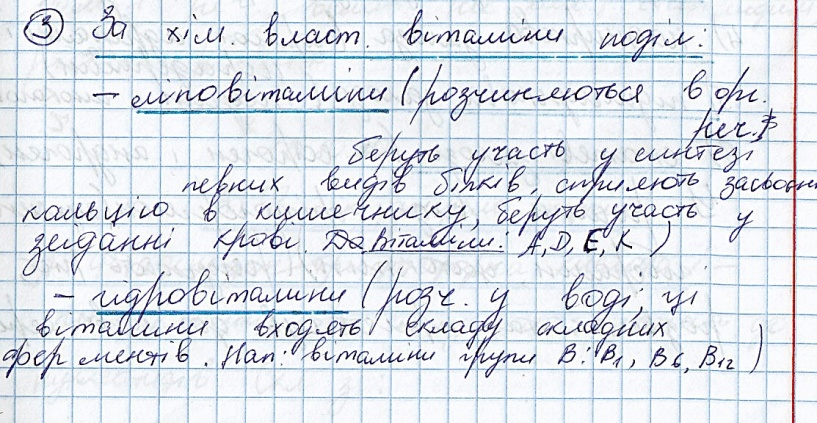 ③ За хім. власт. вітаміни поділ:
– ліповітаміни (розчиняються в орг.
реч.
беруть участь у синтезі
певних видів білків, сприяють засвоєнн
кальцію в кишечнику, беруть участь у
зсіданні крові. До вітаміни: A, D, E, K)
– гідровітаміни (розч. у воді, ці
вітаміни входять складу складних
ферментів. Нап: вітаміни групи B: B₁, B₆, B₁₂)